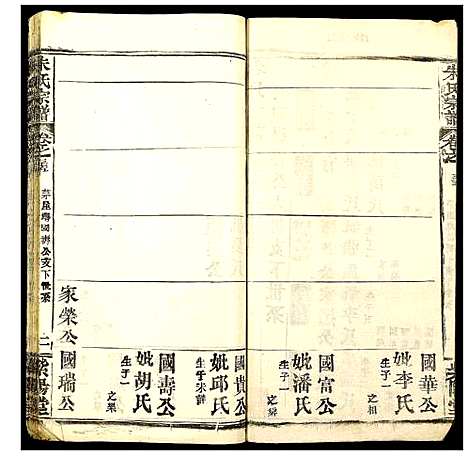 朱氏宗譜
卷之
國華公
妣李氏
生子一
之相
國富公
妣潘氏
生子一
之賢
國貴公
妣邱氏
生子未詳
國壽公
妣胡氏
生子一
之榘
國瑞公
家榮公
朱氏宗譜
卷之
公支下世系
二
紫陽堂